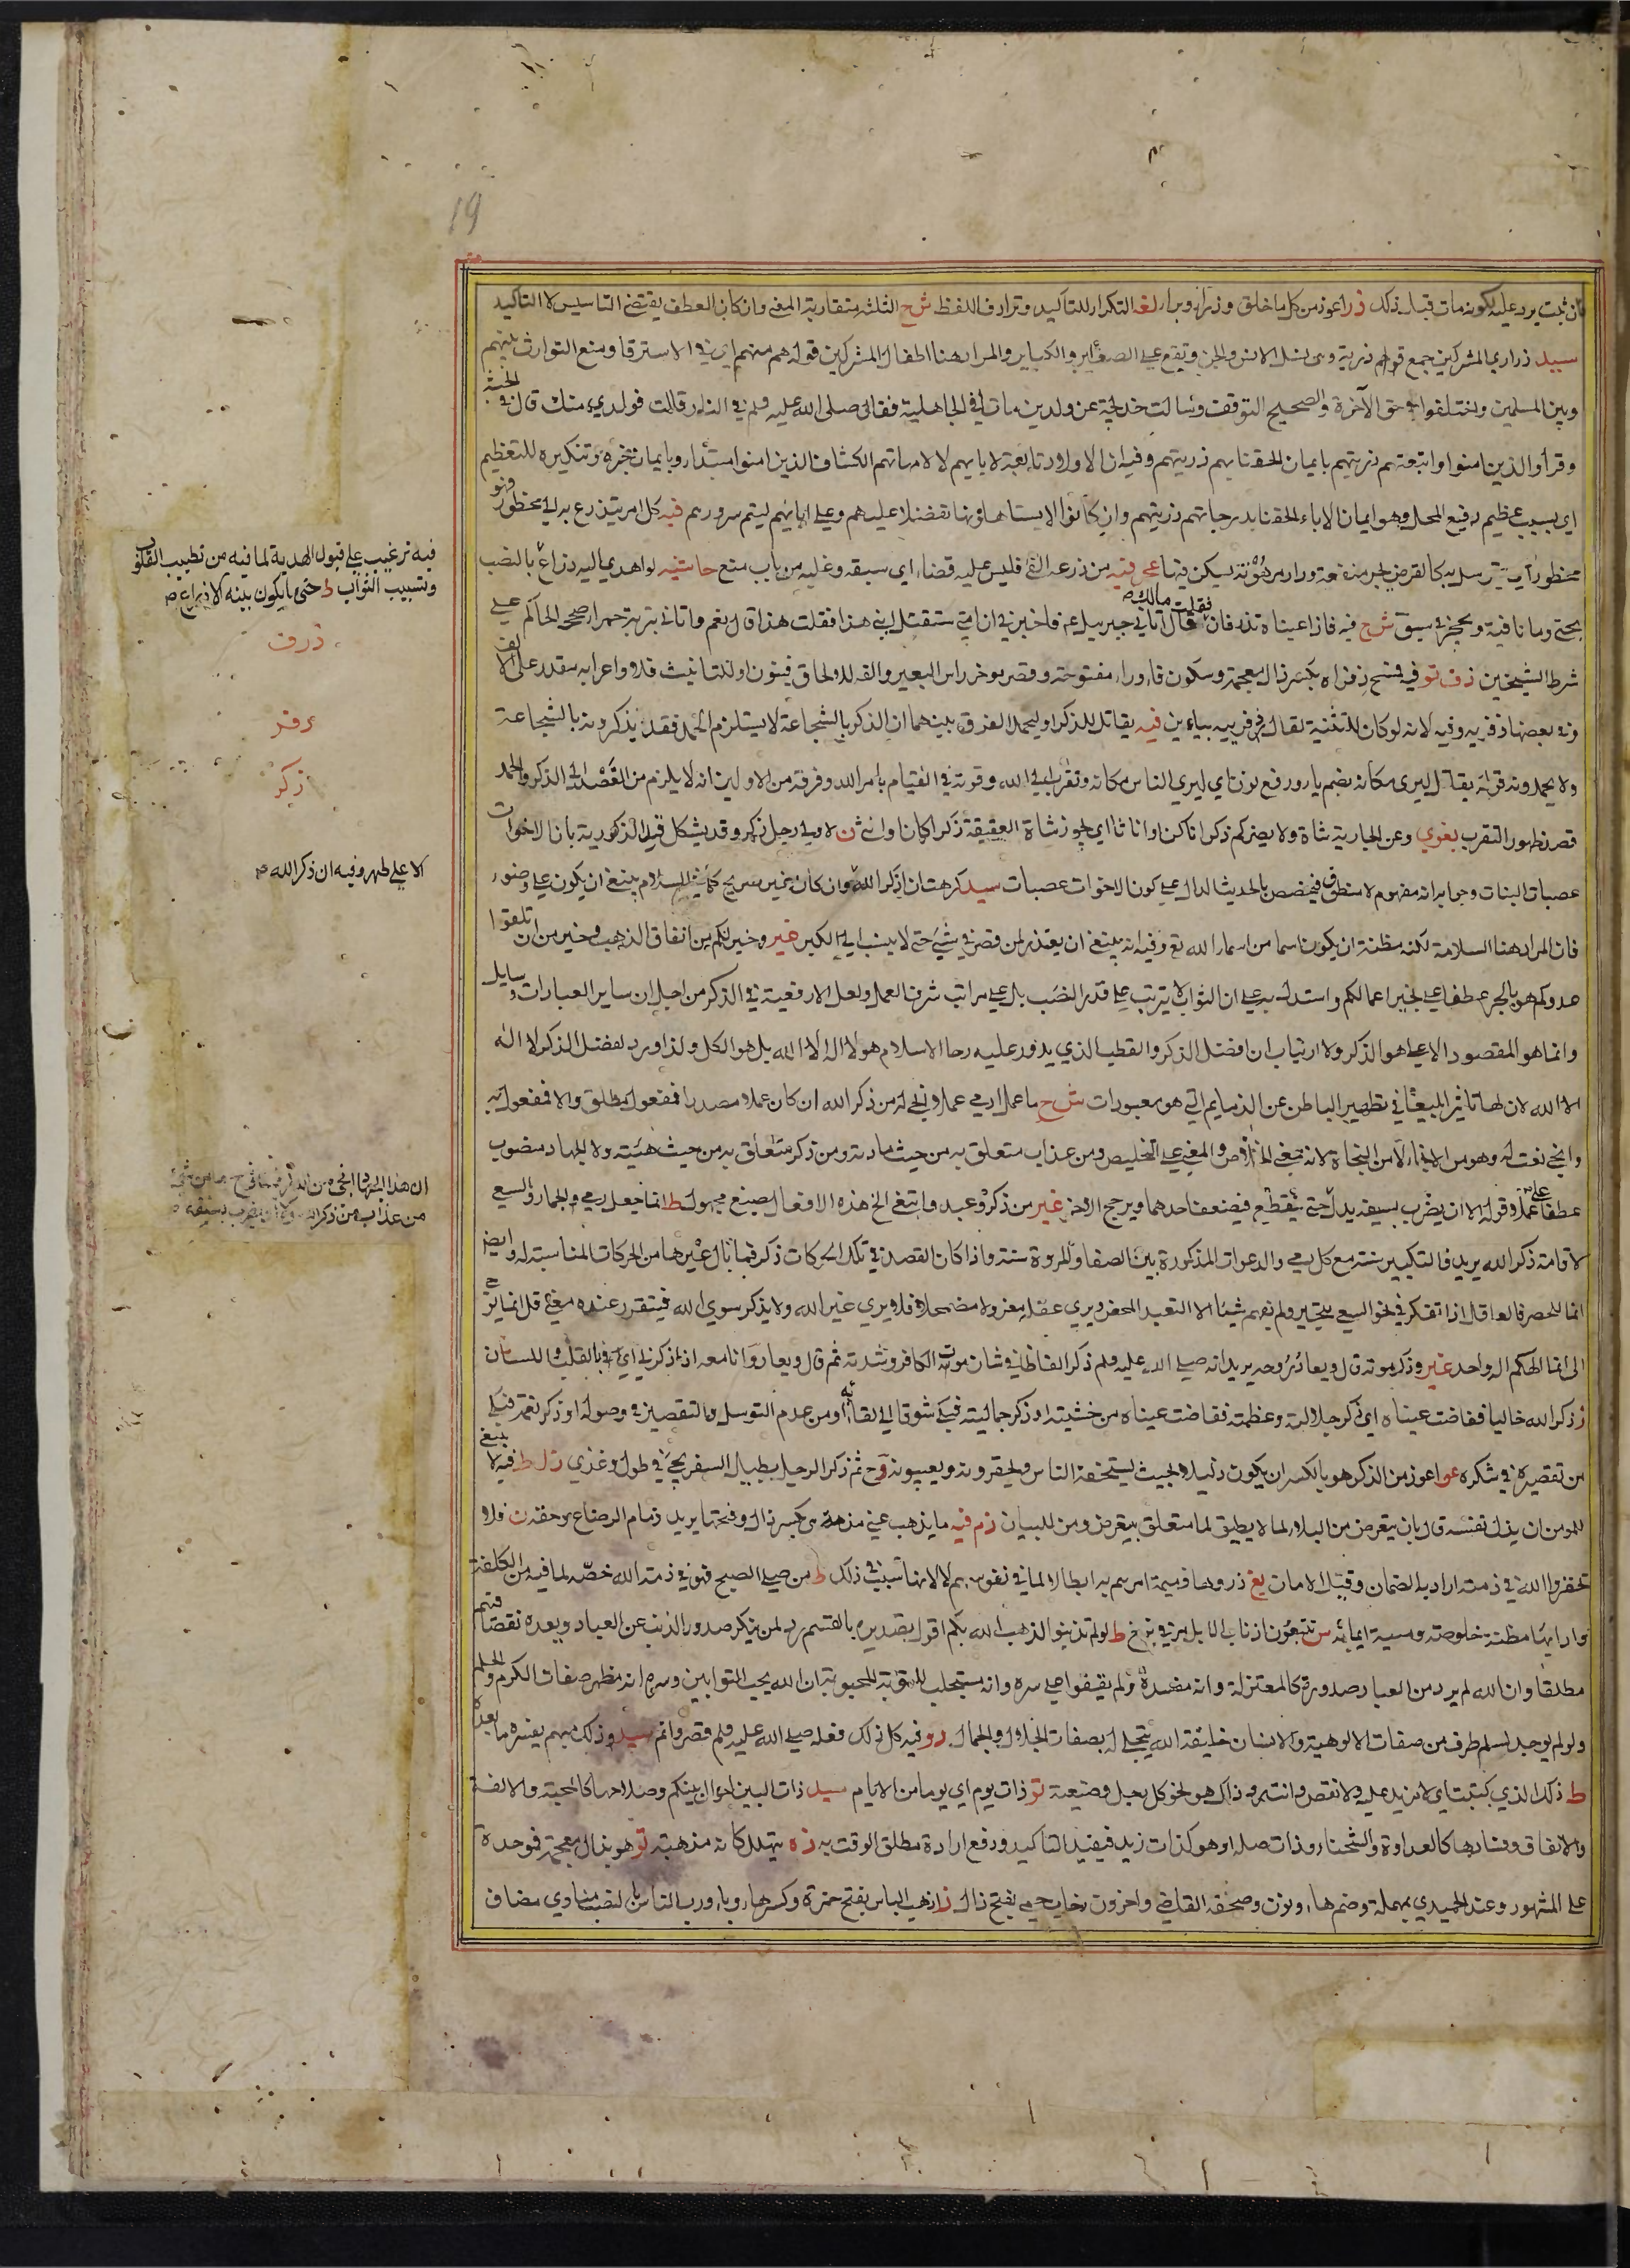 19
ان ثبت يرد عليه بكونه مات قبل ذلك ذرا اعوذ من كل ما خلق وذرا وبرا لغة التكرار للتاكيد وترادف اللفظ ش ح الثلثة متقاربة المعنى وان كان العطف يقتضي التاسيس لا التاكيد
سيد ذراري المشركين جمع ذرية وهى نسل الانس والجن وتقع على الصغاير والكباير والمراد هنا اطفال المشركين قوله هم منهم اي في الاسترقا ومنع التوارث بينهم
وبين المسلمين واختلفوا في حق الآخرة والصحيح التوقف وسالت خديجة عن ولدين ماتا في الجاهلية فقال صلى الله عليه وسلم في النار قالت فولدي منك قال في الجنة
وقرأ والذين امنوا واتبعتهم ذريتهم بايمان الحقنا بهم ذريتهم وفيه ان الاولاد تابعة لابايهم لا لامهاتهم الكشاف الذين امنوا مبتدأ وبايمان خبره وتنكيره للتعظيم
اي بسبب عظيم رفيع المحل وهو ايمان الاباء الحقنا بدرجاتهم ذريتهم وان كانوا لا يستاهلونها تفضلا عليهم وعلى ابائهم ليتم سرورهم فيه كل امر يتذرع به الى محظور فهو
محظور اي يتوسل به كالقرض يجر منفعة ودار مرهونة يسكن فيها من ذرعه القئ فليس عليه قضاء اي سبقه وغلبه من باب منع حاشية لو اهدي اليه ذراع بالنصب
بحتى وما نافية شرح فيه فاذا عيناه تذرفان فقلت مالك قال اتاني جبريل عم فاخبرني ان امتي ستقتل ابني هذا فقلت هذا قال نعم واتاني بتربة حمراء صححه الحاكم على
شرط الشيخين ذف تو في فتح ذفراه بكسر ذال معجمة وسكون فاء وراء مفتوحة وقصر موخر راس البعير والفه للالحاق فينون او للتانيث فلا واعرابه مقدر على الالف
وفي بعضها ذفريه وفيه لانه لو كان للتثنية لقال ذفرييه بيائين فيه يقاتل للذكر او ليحمد الفرق بينهما ان الذكر بالشجاعة لا يستلزم الحمد فقد يذكرونه بالشجاعة
ولا يحمدونه قوله يقاتل ليرى مكانه بضم ياء ورفع نون اي ليري الناس مكانه وتقربه الى الله وقوته في القيام بامر الله وفرقه من الاولين انه لا يلزم من القصد الى الذكر والحمد
قصد ظهور التقرب بغوي وعن الجارية شاة ولا يضركم ذكرانا كن او اناثا اي يجوز شاة العقيقة ذكرا كان او انثى ن لاولى رجل ذكر وقد يشكل قيد الذكورية بان الاخوات
عصبات البنات وجوابه انه مفهوم لا منطوق فيخصص بالحديث الدال على كون الاخوات عصبات سيد كرهت ان اذكر الله وان كان غير صريح كما في السلام ينبغي ان يكون على وضوء
فان المراد هنا السلامة لكنه مظنة ان يكون اسما من اسماء الله تع وفيه انه ينبغي ان يعتذر لمن قصر في شئ حتى لا ينسب الى الكبر غير وخير لكم من انفاق الذهب وخير من ان تلقوا
عدوكم هو بالجر عطفا على بخير اعمالكم واستدل به على ان الثواب لا يترتب على قدر النصب بل على مراتب شرف العمل ولعل الارفعية في الذكر من اجل ان ساير العبادات وسايل
وانما هو المقصود الاعلى هو الذكر ولا ارتياب ان افضل الذكر والقطب الذي يدور عليه رحا الاسلام هو لا اله الا الله بل هو الكل ولذا ورد افضل الذكر لا اله
الا الله لان لها تاثيرا بليغا في تطهير الباطن عن الذمايم التي هو معبودات ش ح ما عمل ادمي عملا انجى له من ذكر الله ان كان عملا مصدرا فمفعول مطلق والا فمفعول به
وانجى نعت له وهو من الانجاء لا من النجاة لانه بمعنى الخلاص والمعنى على التخليص ومن عذاب متعلق به من حيث مادته ومن ذكر متعلق به من حيث هيئته ولا الجهاد منصوب
عطفا على عملا وقوله الا ان يضرب بسيفه يدل حتى ينقطع فيضعف احدهما ويرجح الاخر غير من ذكر وعبد وابتغى الخ هذه الافعال بصيغ مجهول ط انما جعل رمي والجمار والسعي
لاقامة ذكر الله يريد فالتكبير سنة مع كل رمي والدعوات المذكورة بين الصفا والمروة سنة واذا كان القصد في تلك الحركات ذكر فما بال غيرها من الحركات المناسبة له وايضا
انما للحصر فالعاقل اذا تفكر في نحو السعي يتحير ولم يفهم شيئا الا التعبد المحض ويرى عقله معزولا مضمحلا فلا يرى غير الله ولا يذكر سوى الله فيتقرر عنده معنى قل انما يوحى
الى انما الهكم اله واحد غير وذكر موته قال ويعاد روحه يريد انه صلى الله عليه وسلم ذكر الفاظا في شان موت الكافر وشدته ثم قال ويعاد وانا معه اذا ذكرني اي بالقلب او اللسان
ن ذكر الله خاليا ففاضت عيناه اي ذكر جلالته وعظمته ففاضت عيناه من خشيته او ذكر جماليته فبكى شوقا الى لقائه او من عدم التوسل والتقصير في وصوله او ذكر نعمه فبكى
من تقصيره في شكره عو اعوذ من الذكر هو بالكسر ان يكون ذليلا بحيث يستخفه الناس ويحقرونه ويعيبونه وح ثم ذكر الرجل يطيل السفر يجئ في طول وغذي ذل ط فيه لا ينبغي
للمومن ان يذل نفسه قال بان يتعرض من البلاء لما لا يطيق لما متعلق بيتعرض ومن للبيان ذم فيه ما يذهب عني مذمة هى بكسر ذال وفتحها يريد ذمام الرضاع وحقه ن فلا
تخفروا الله في ذمته اراد به الضمان وقيل الامان بغ ذروها ذميمة امرهم به ابطالا لما في نفوسهم لا لانها سبب في ذلك ط من صلى الصبح فهو في ذمة الله خصه لما فيه من الكلفة
واداؤها مظنة خلوصه وسمة ايمانه س يتتبعون اذناب الابل مر في بزخ ط لو لم تذنبوا لذهب الله بكم اقول تصديره بالقسم رد لمن ينكر صدور الذنب عن العباد ويعده نقصا فيهم
مطلقا وان الله لم يرد من العباد صدوره كالمعتزلة وانه مفسدة ولم يقفوا على سره وانه مستجلب للتوبة المحبوبة ان الله يحب التوابين وسره انه مظهر صفات الكرم والحلم
ولو لم يوجد لسلم طرف من صفات الالوهية والانسان خليفة الله يتجلى له بصفات الجلال والجمال ذو فيه كل ذلك فعله صلى الله عليه وسلم قصر واتم سيد وذلك مبهم يفسره ما بعده
ط ذكر الذي كتبت اي لا نزيد عليه ولا نقص وانتم وذاك هو نحو كل رجل وضيعته تو ذات يوم اي يوما من الايام سيد ذات البين احوال بينكم وصلاحها كالمحبة والالفة
والاتفاق وفسادها كالعداوة والشحناء وذات صلة او هو كذات زيد فيفيد التاكيد ورفع ارادة مطلق الوقت به ذه يتهلل كانه مذهبة تو هو بذال معجمة فموحدة
على المشهور وعند الحميدي بمهملة وضم هاء ونون وصحفه القاضي واخرون بفتح ذال ن اذهب الباس بفتح همزة وكسر هاء وباء ورب الناس بالنصب منادى مضاف
فيه ترغيب على قبول الهدية لما فيه من تطييب القلوب
وتسبيب الثواب ط حتى ما يكون بينه الا ذراع ص
ذرف
ذفر
ذكر
الا على طهر وفيه ان ذكر الله ص
من عذاب من ذكر الله ولا ان يضرب بسيفه